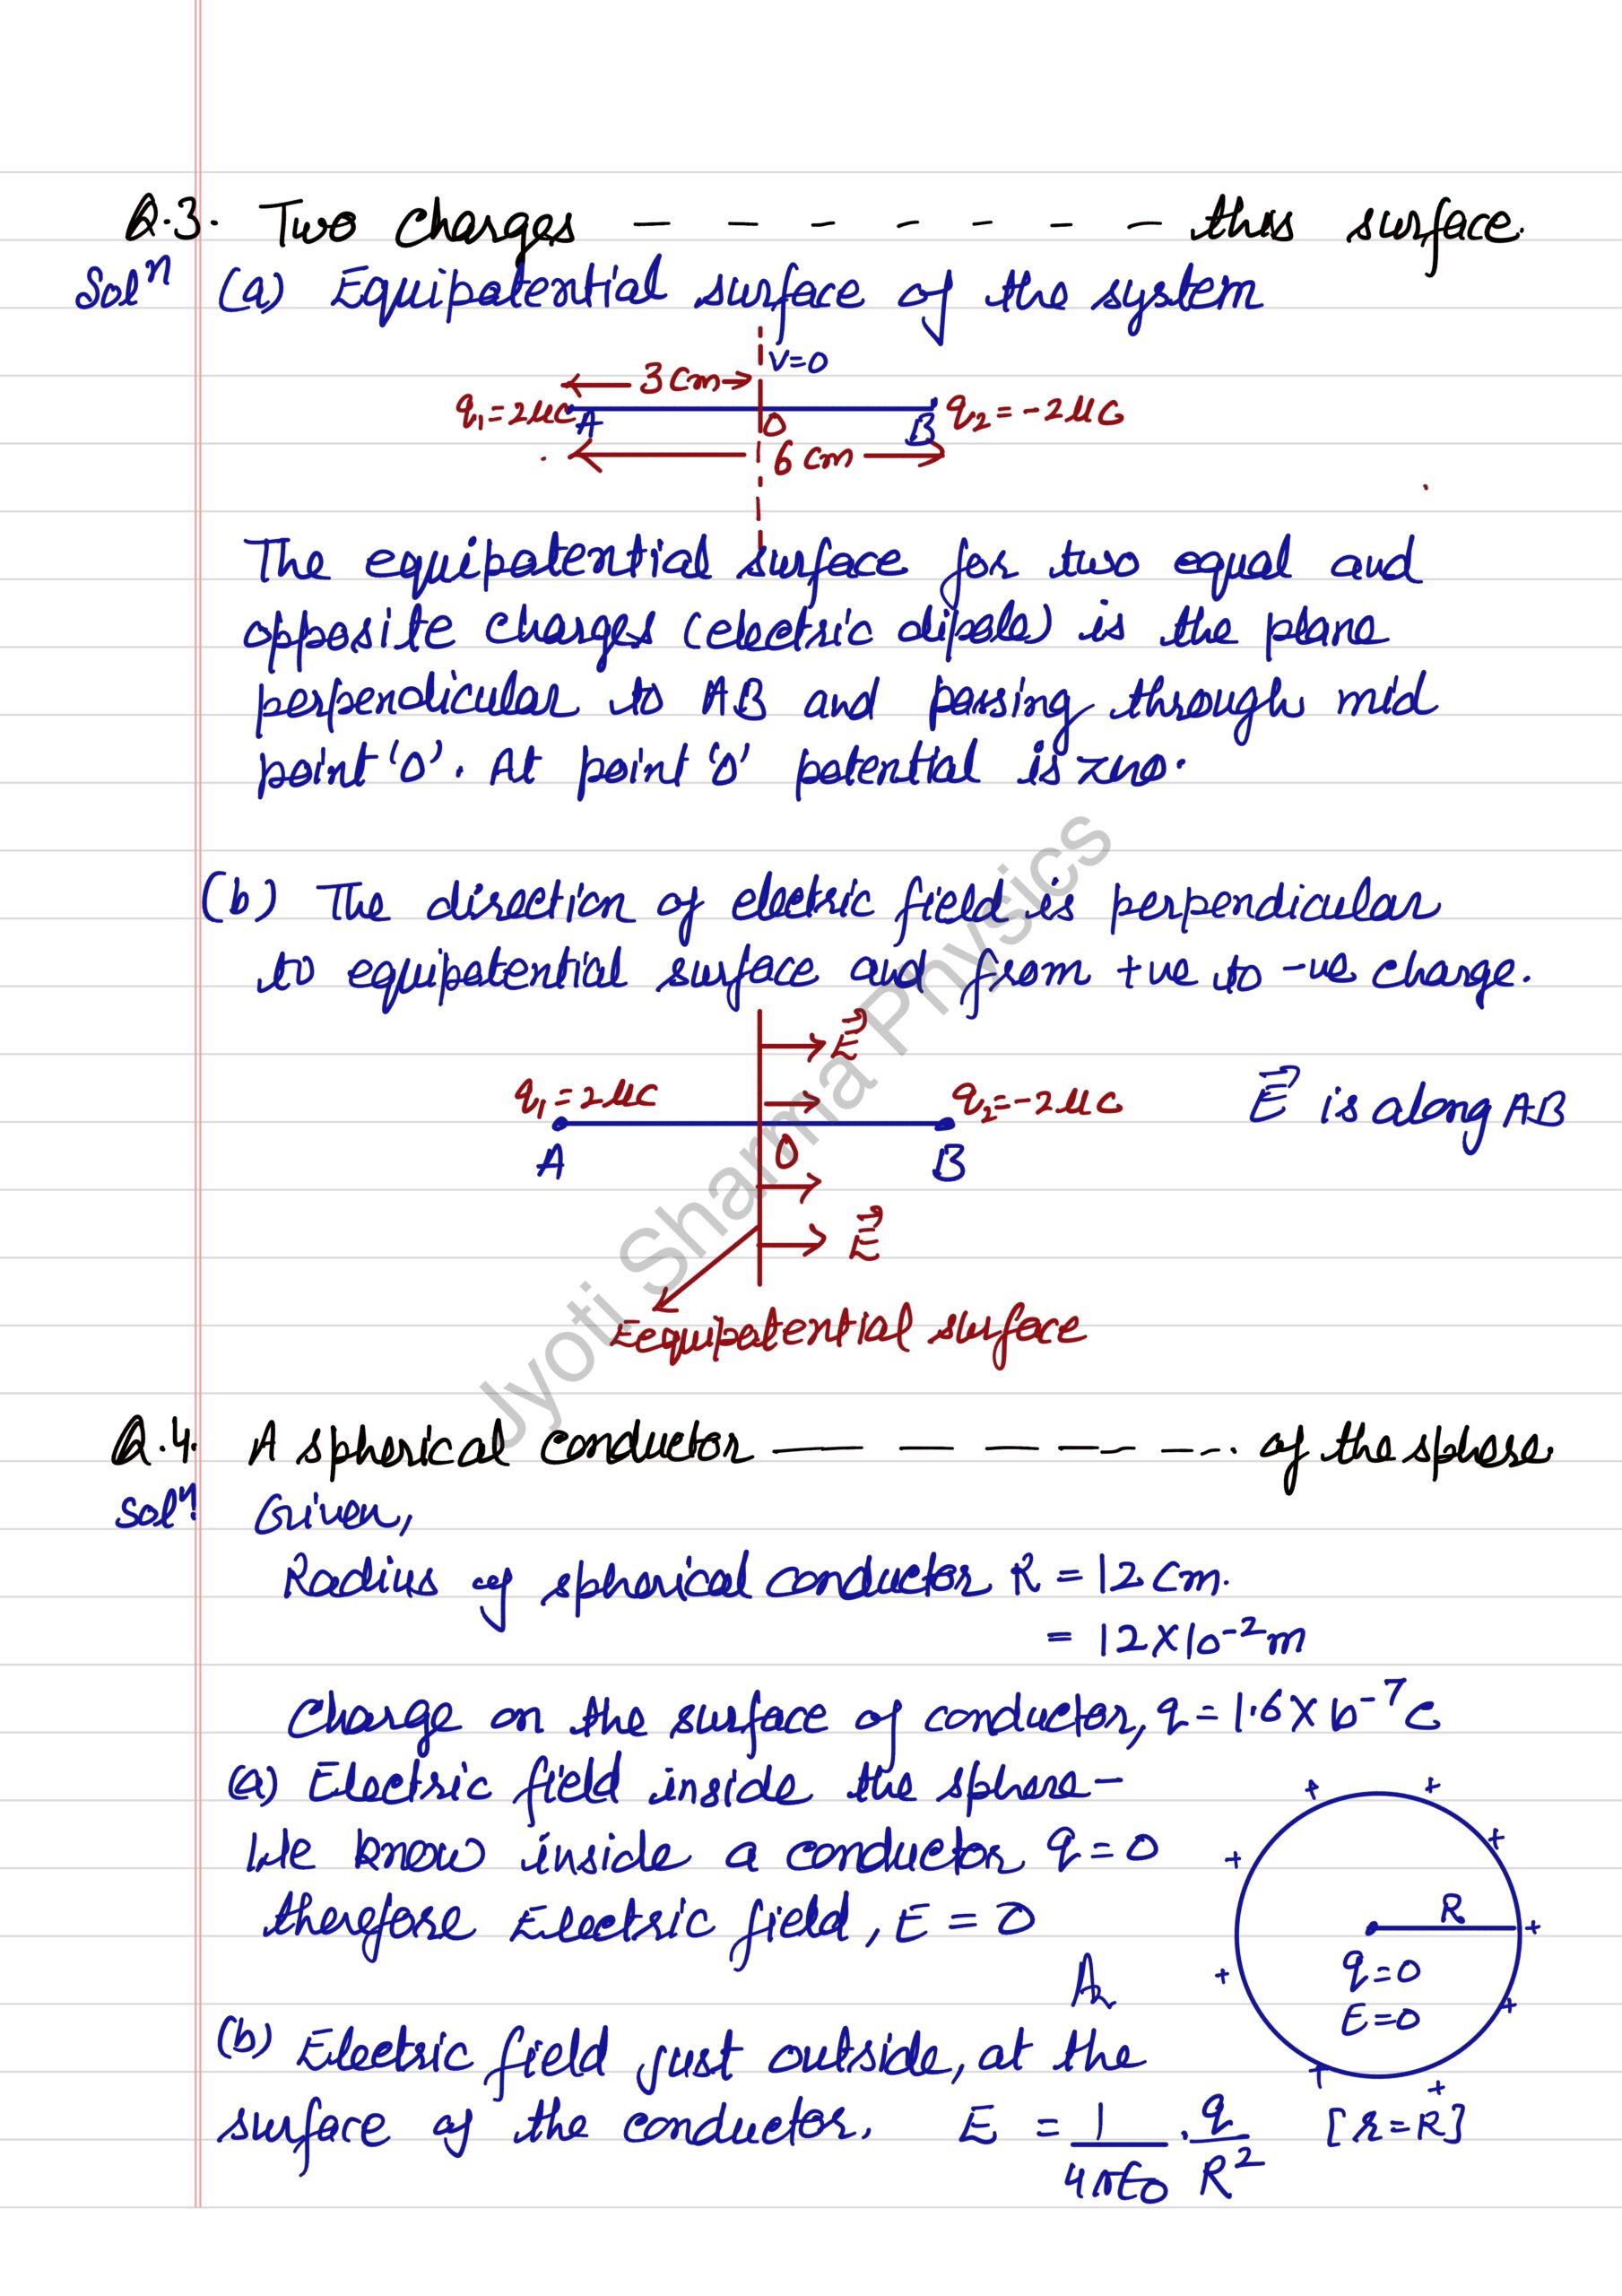 Q.3. Two Charges - - - - - - - this surface.
Solⁿ (a) Equipotential surface of the system
V=0
3 cm
q₁ = 2μC A O B q₂ = -2μC
6 cm
The equipotential surface for two equal and
opposite charges (electric dipole) is the plane
perpendicular to AB and passing through mid
point 'O'. At point 'O' potential is zero.
(b) The direction of electric field is perpendicular
to equipotential surface and from +ve to -ve charge.
E⃗
q₁ = 2μC q₂ = -2μC E⃗ is along AB
A O B
E⃗
Eequipotential surface
Q.4. A spherical conductor - - - - - - - of the sphere.
Solⁿ. Given,
Radius of spherical conductor R = 12 cm.
= 12 X 10⁻² m
Charge on the surface of conductor, q = 1.6 X 10⁻⁷ C
(a) Electric field inside the sphere -
We know inside a conductor q = 0
therefore Electric field, E = 0
R
q = 0
E = 0
(b) Electric field just outside, at the
surface of the conductor. E = 1/4πε₀ . q/R² [r = R]
Jyoti Sharma Physics